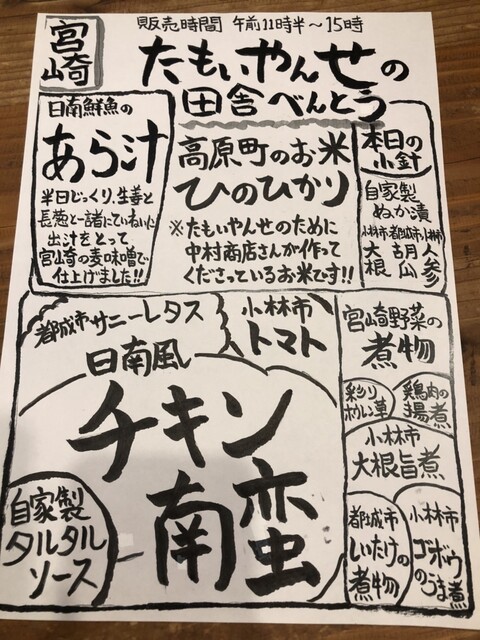 宮崎
販売時間 午前11時半～15時
たもいやんせの
田舎べんとう
日南鮮魚の
あら汁
半日じっくり、生姜と
長葱と一諸にていねいに
出汁をとって
宮崎の麦味噌で
仕上げました!!
高原町のお米
ひのひかり
※たもいやんせのために
中村商店さんが作って
くださっているお米です!!
本日の
小針
自家製
ぬか漬
小林市 都城市 小林市
大根 胡瓜 人参
都城市サニーレタス
小林市
トマト
日南風
チキン
南蛮
自家製
タルタル
ソース
宮崎野菜の
煮物
彩り
ホウレン草
鶏肉の
揚煮
小林市
大根旨煮
都城市
しいたけの
煮物
小林市
ゴボウ
のうま煮